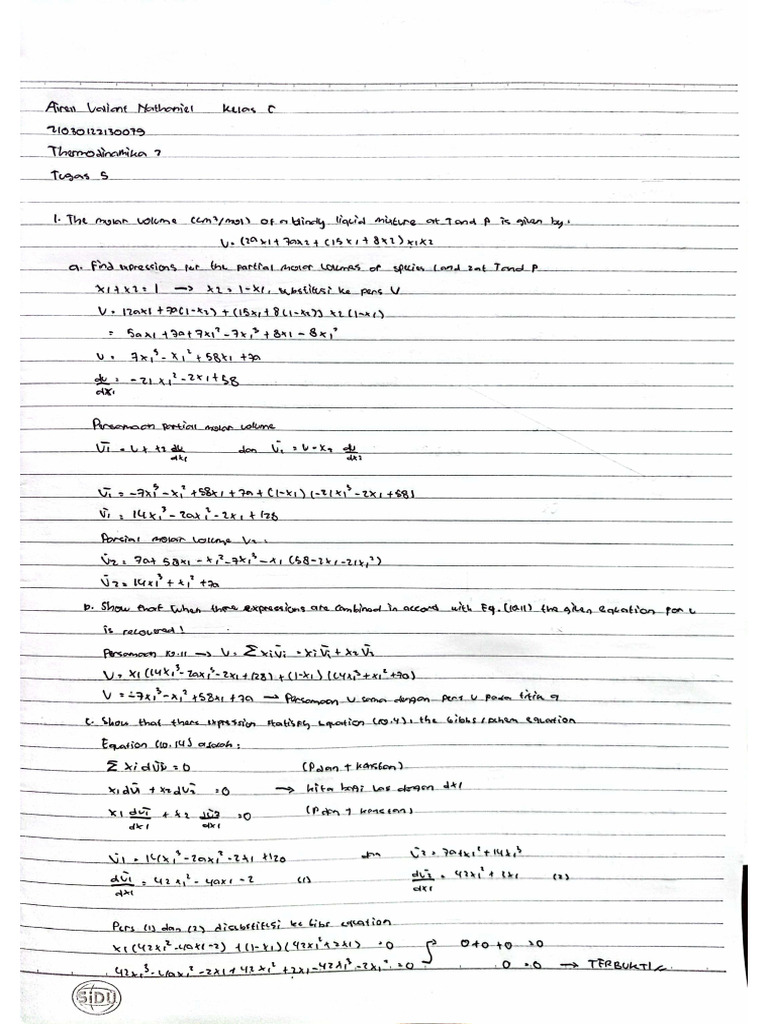 Airen Valiant Nathaniel Kelas C
21030122130079
Thermodinamika 2
Tugas 5
1. The molar volume (cm3/mol) of a bindy liquid mixture at T and P is given by:
V = 120x1 + 70x2 + (15x1 + 8x2) x1x2
a. Find expressions for the partial molar volumes of species 1 and 2 at T and P
x1 + x2 = 1 → x2 = 1-x1, substitusi ke pers V
V = 120x1 + 70(1-x2) + (15x1 + 8(1-x2)) x2(1-x1)
= 50x1 + 70 + 7x1² - 7x1³ + 8x1 - 8x1²
V = 7x1³ - x1² + 58x1 + 70
dv/dx1 = -21x1² - 2x1 + 58
Persamaan partial molar volume
V̄1 = V + x2 dv/dx1 dan V̄1 = V - x2 dv/dx2
V̄1 = -7x1³ - x1² + 58x1 + 70 + (1-x1) (-21x1³ - 2x1 + 58)
V̄1 = 14x1³ - 20x1² - 2x1 + 128
Parsial molar volume V2:
V̄2 = 70 + 58x1 - x1² - 7x1³ - x1 (58 - 2x1 - 21x1²)
V̄2 = 14x1³ + x1² + 70
b. Show that when these expressions are combined in accord with Eq. (10.11) the given equation for V
is recovered!
Persamaan 10.11 → V = Σ xiV̄i = x1V̄1 + x2V̄2
V = x1(14x1³ - 20x1³ - 2x1 + 128) + (1-x1) (14x1³ + x1² + 70)
V = -7x1³ - x1² + 58x1 + 70 → Persamaan V sama dengan pers V pada titik a
c. Show that these expression statisfy Equation (10.14), the Gibbs/Duhem equation
Equation (10.14) adalah:
Σ xi dV̄i = 0 (P dan T konstan)
x1dV̄1 + x2dV̄2 = 0 → kita bagi ruas dengan dx1
x1 dV̄1/dx1 + x2 dV̄2/dx1 = 0 (P dan T konstan)
V̄1 = 14x1³ - 20x1² - 2x1 + 120 dan V̄2 = 70 + x1² + 14x1³
dV̄1/dx1 = 42x1² - 40x1 - 2 (1) dV̄2/dx1 = 42x1² + 2x1 (2)
Pers (1) dan (2) disubstitusi ke Gibs equation
x1(42x1² - 40x1 - 2) + (1-x1)(42x1² + 2x1) = 0 0 + 0 + 0 = 0
42x1³ - 40x1² - 2x1 + 42x1² + 2x1 - 42x1³ - 2x1² = 0 0 = 0 → TERBUKTI
SiDU